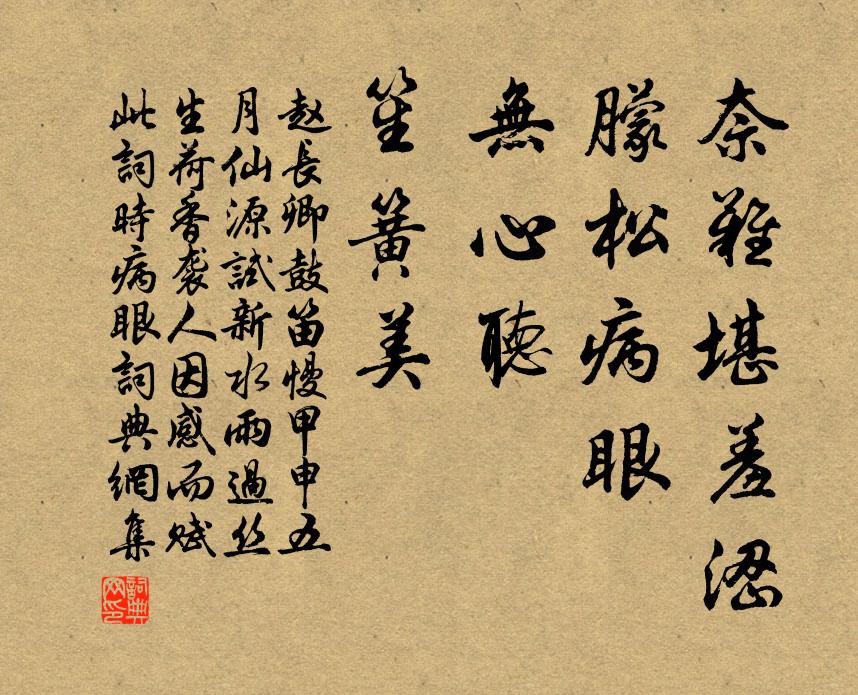 奈難堪羞澀
朦松病眼
無心聽
笙簧美
赵長卿鼓笛慢甲申五
月仙源試新水雨過丝
生荷香袭人因感而赋
此詞時病眼詞典網集
詞典
网印